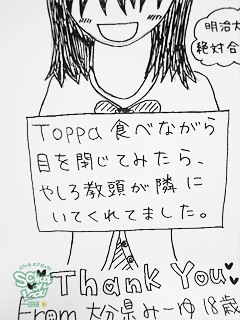 明治大
絶対合
Toppa食べながら
目を閉じてみたら、
やしろ教頭が隣に
いてくれてました。
Thank You
From 大分県みーゆ18歳